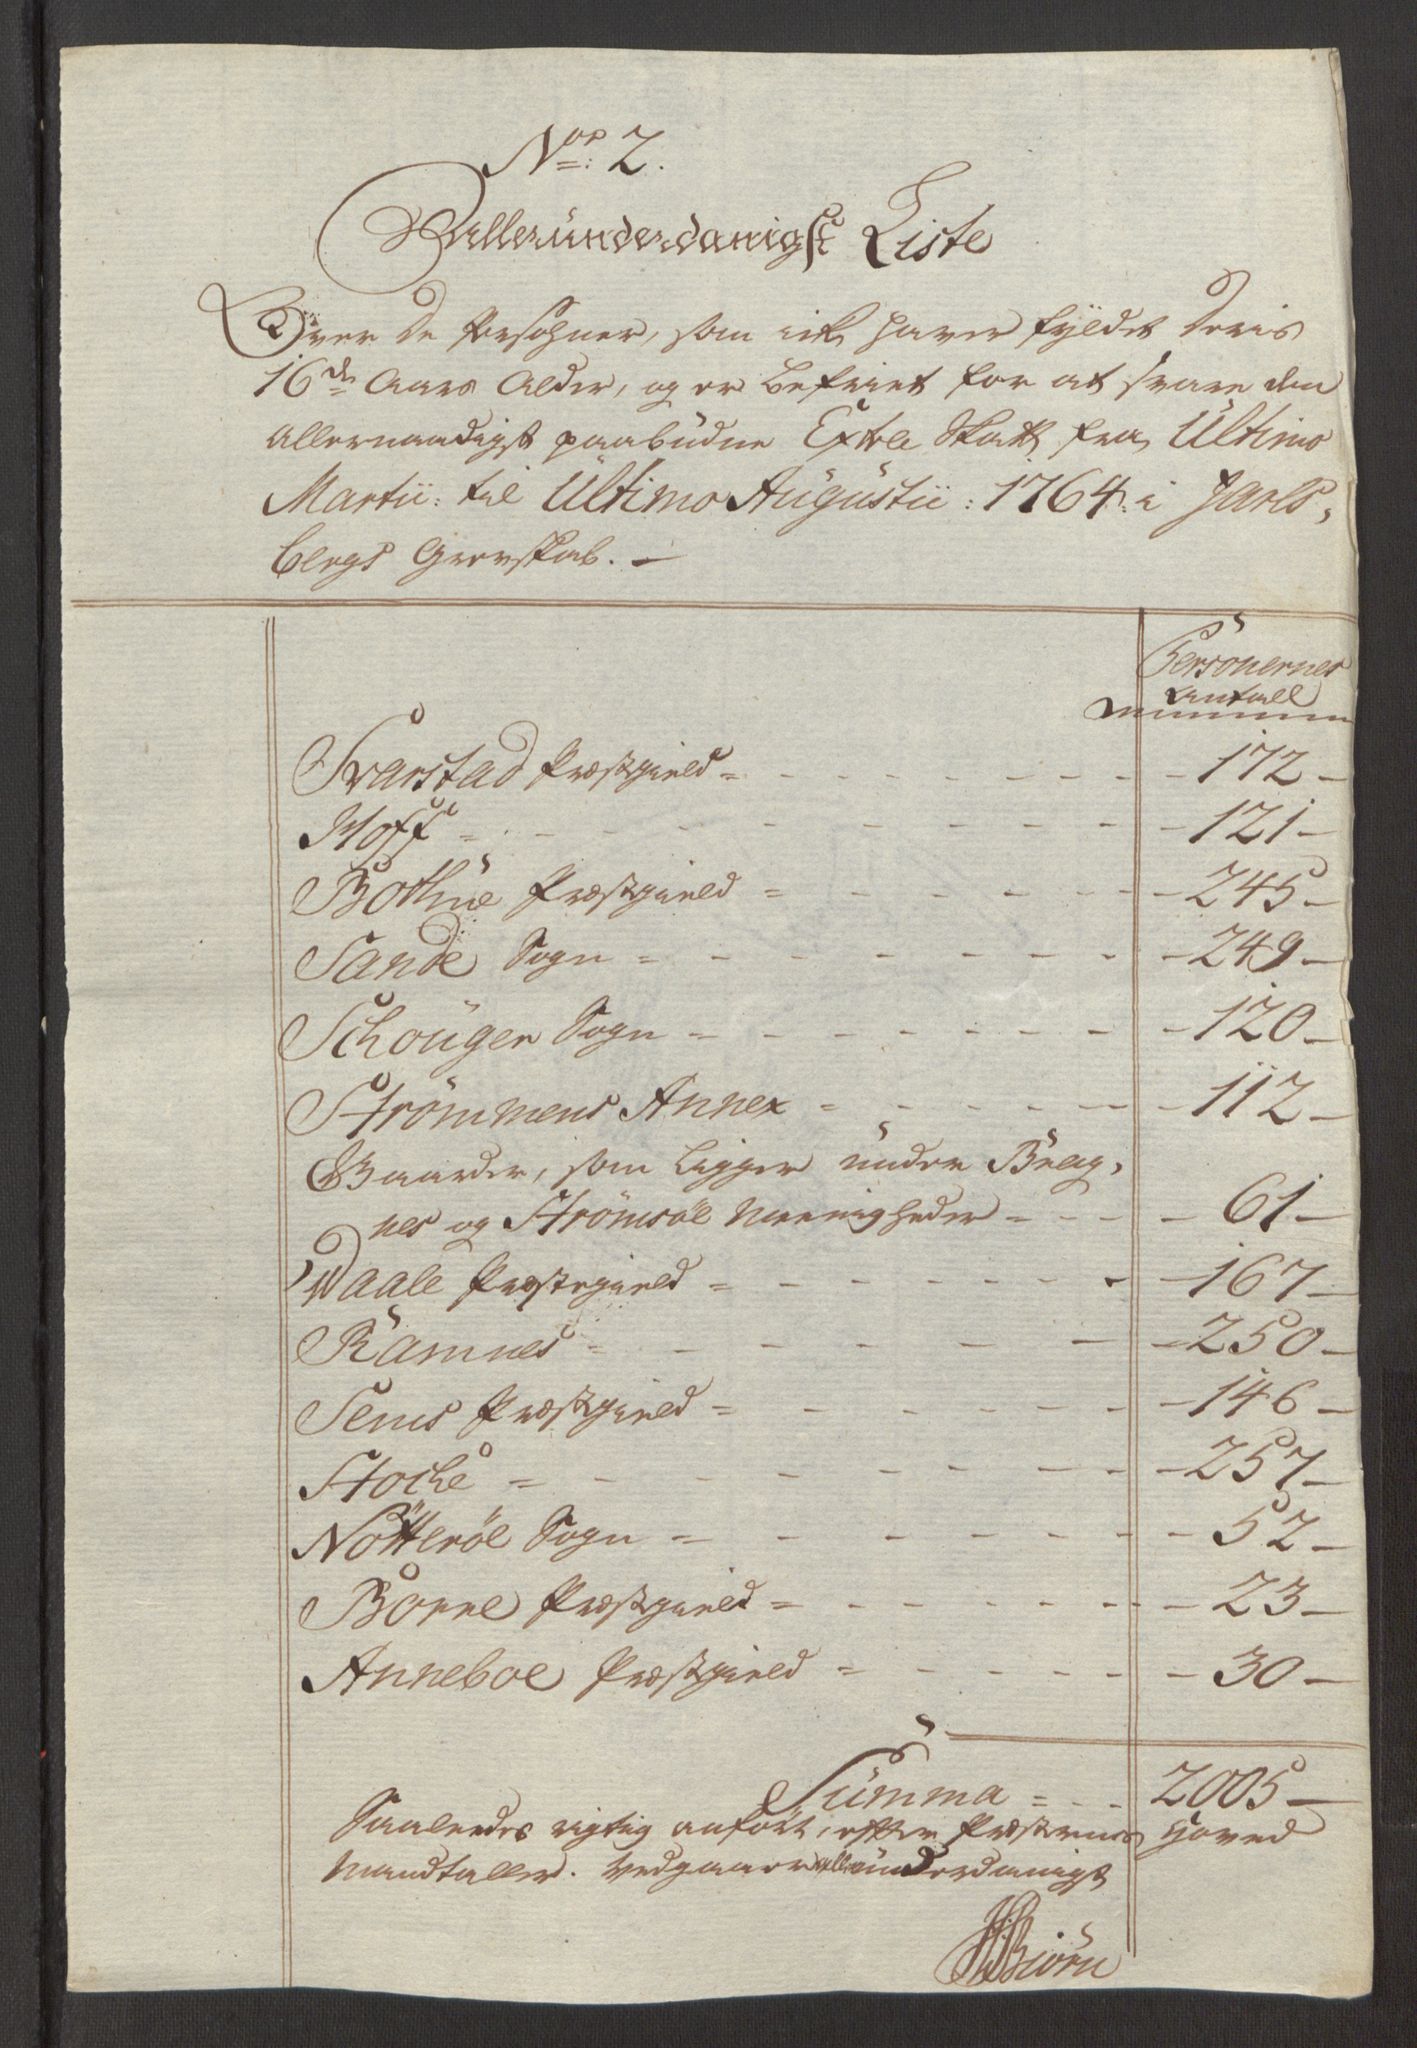 No: 2.
Alleründerdanigst Liste
Over de Persohner, som iche haver fyldet deris
16de Aars Alder, og er befriet for at svare den
allernaadigst paabüdne Extra Skatt fra Ültimo
Martii: til Ültimo Augüstii: 1764: i Jarls,
bergs Grevskab. —
Personernes
antall
Svarstad Præstegield = - - - 172 —
Hoff = - - - 121 —
Bothne Præstegield = - - - 245 —
Sande Sogn = - - - 249 —
Schouger Sogn = - - - 120 —
Strömmens Annex = - - - 112 —
Gaarder, som ligger ünder Brag,
nes og Strömsöe Meenigheder = - - - 61 —
Waale Præstegield = - - - 167 —
Ramnes = - - - 250 —
Sems Præstgield = - - - 146 —
Stocke = - - - 257 —
Nötteröe Sogn = - - - 52 —
Borre Præstgield = - - - 23 —
Anneboe Præstgield = - - - 30 —
Sümma = - - 2005 —
Saaledes rigtig anfört, efter Præsternes Hoved
Mandtaller. Vedgaaer alleründerdanigst
HBiörn